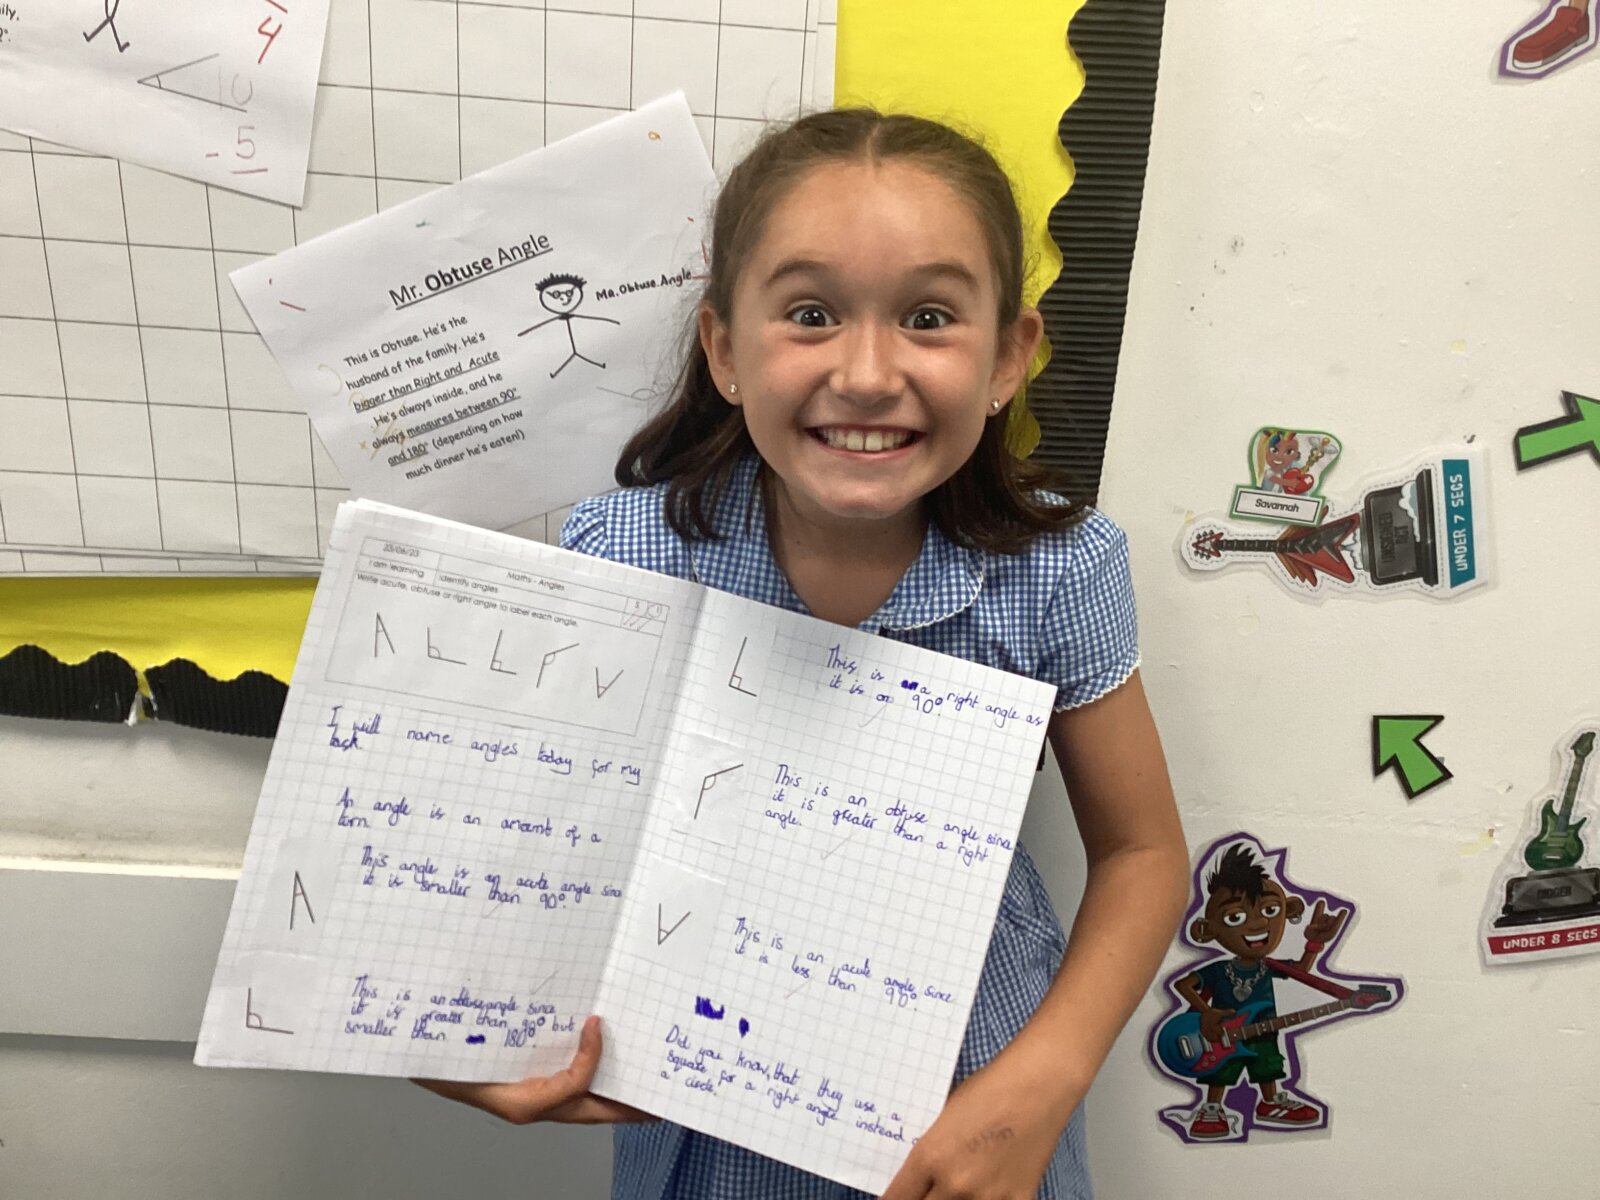 4
10
- 5
Mr. Obtuse Angle
Mr. Obtuse Angle
This is Obtuse. He's the
husband of the family. He's
bigger than Right and Acute
He's always inside, and he
always measures between 90°
and 180° (depending on how
much dinner he's eaten!)
23/06/23
Maths - Angles
I am learning
Identify angles
Write acute, obtuse or right angle to label each angle.
I will name angles today for my
task.
An angle is an amount of a
turn.
This angle is an acute angle sinc
it is smaller than 90°.
This is an obtuse angle since
it is greater than 90° but
smaller than 180°.
This is a right angle as
it is on 90°.
This is an obtuse angle since
it is greater than a right
angle.
This is an acute angle since
it is less than 90°.
Did you know, that they use a
square for a right angle instead o
a circle.
Savannah
UNDER 7 SECS
DIGGER
UNDER 8 SECS